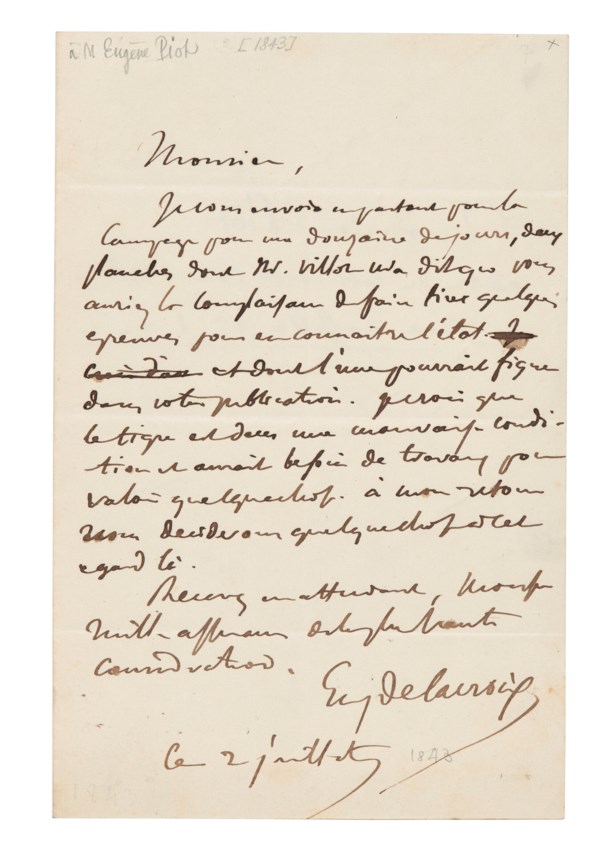 à M Eugène Piot [1843] x
Monsieur,
Je vous envoie en partant pour la
Campagne pour une douzaine de jours, deux
planches dont Mr. Villot m'a dit que vous
auriez la complaisance de faire tirer quelques
epreuves pour en connaitre l'état. Je
et dont l'une pourrait figurer
dans votre publication. Je crois que
le tigre est dans une mauvaise condi-
tion et aurait besoin de travaux pour
valoir quelque chose. à mon retour
nous deciderons quelque chose à cet
egard là.
Recevez en attendant, Monsieur
mille assurances de la plus haute
consideration.
Eug Delacroix
Ce 2 juillet 1843